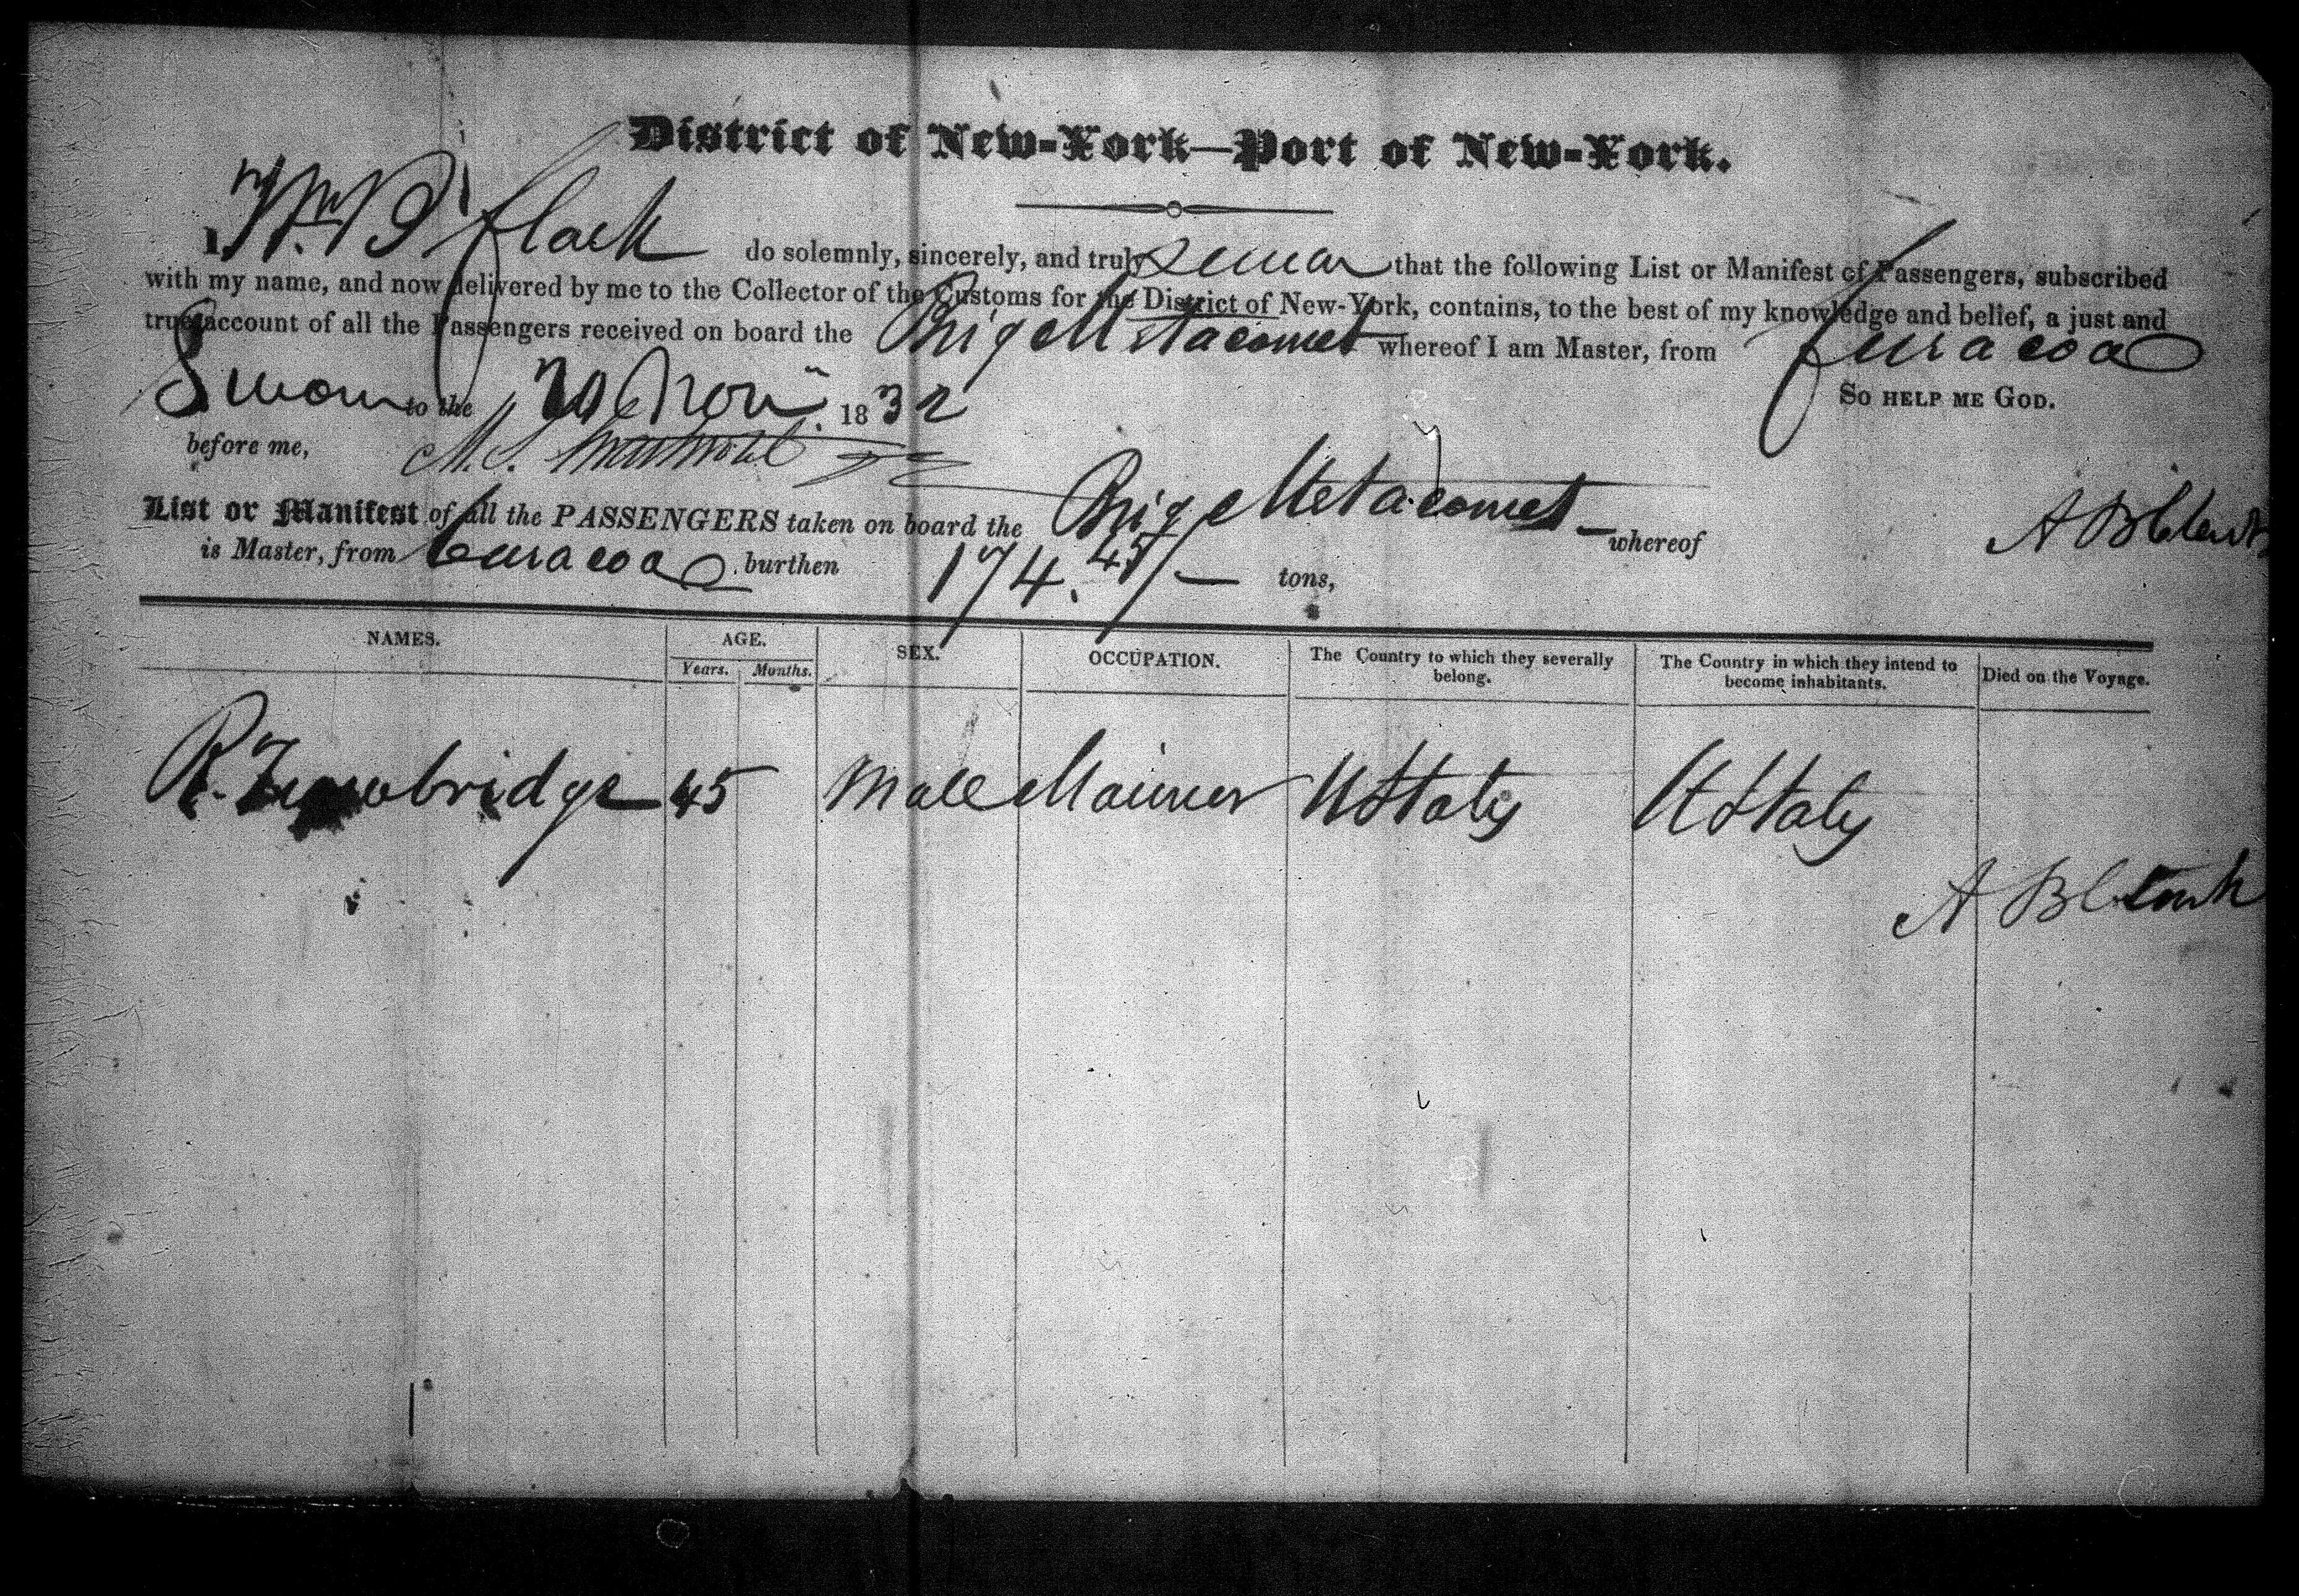 District of New-York—Port of New-York.
I, Wm B Clark do solemnly, sincerely, and truly swear that the following List or Manifest of Passengers, subscribed
with my name, and now delivered by me to the Collector of the Customs for the District of New-York, contains, to the best of my knowledge and belief, a just and
true account of all the Passengers received on board the Brig Metacomet whereof I am Master, from Curacoa
Sworn to the 20 Nov. 1832 So help me God.
before me, M. S.
List or Manifest of all the PASSENGERS taken on board the Brig Metacomet whereof A B Clark
is Master, from Curacoa burthen 174.45/ tons,
NAMES. AGE. SEX. OCCUPATION. The Country to which they severally belong. The Country in which they intend to become inhabitants. Died on the Voyage.
Years. Months.
R. 45 Male Mariner U States U States
A B Clark